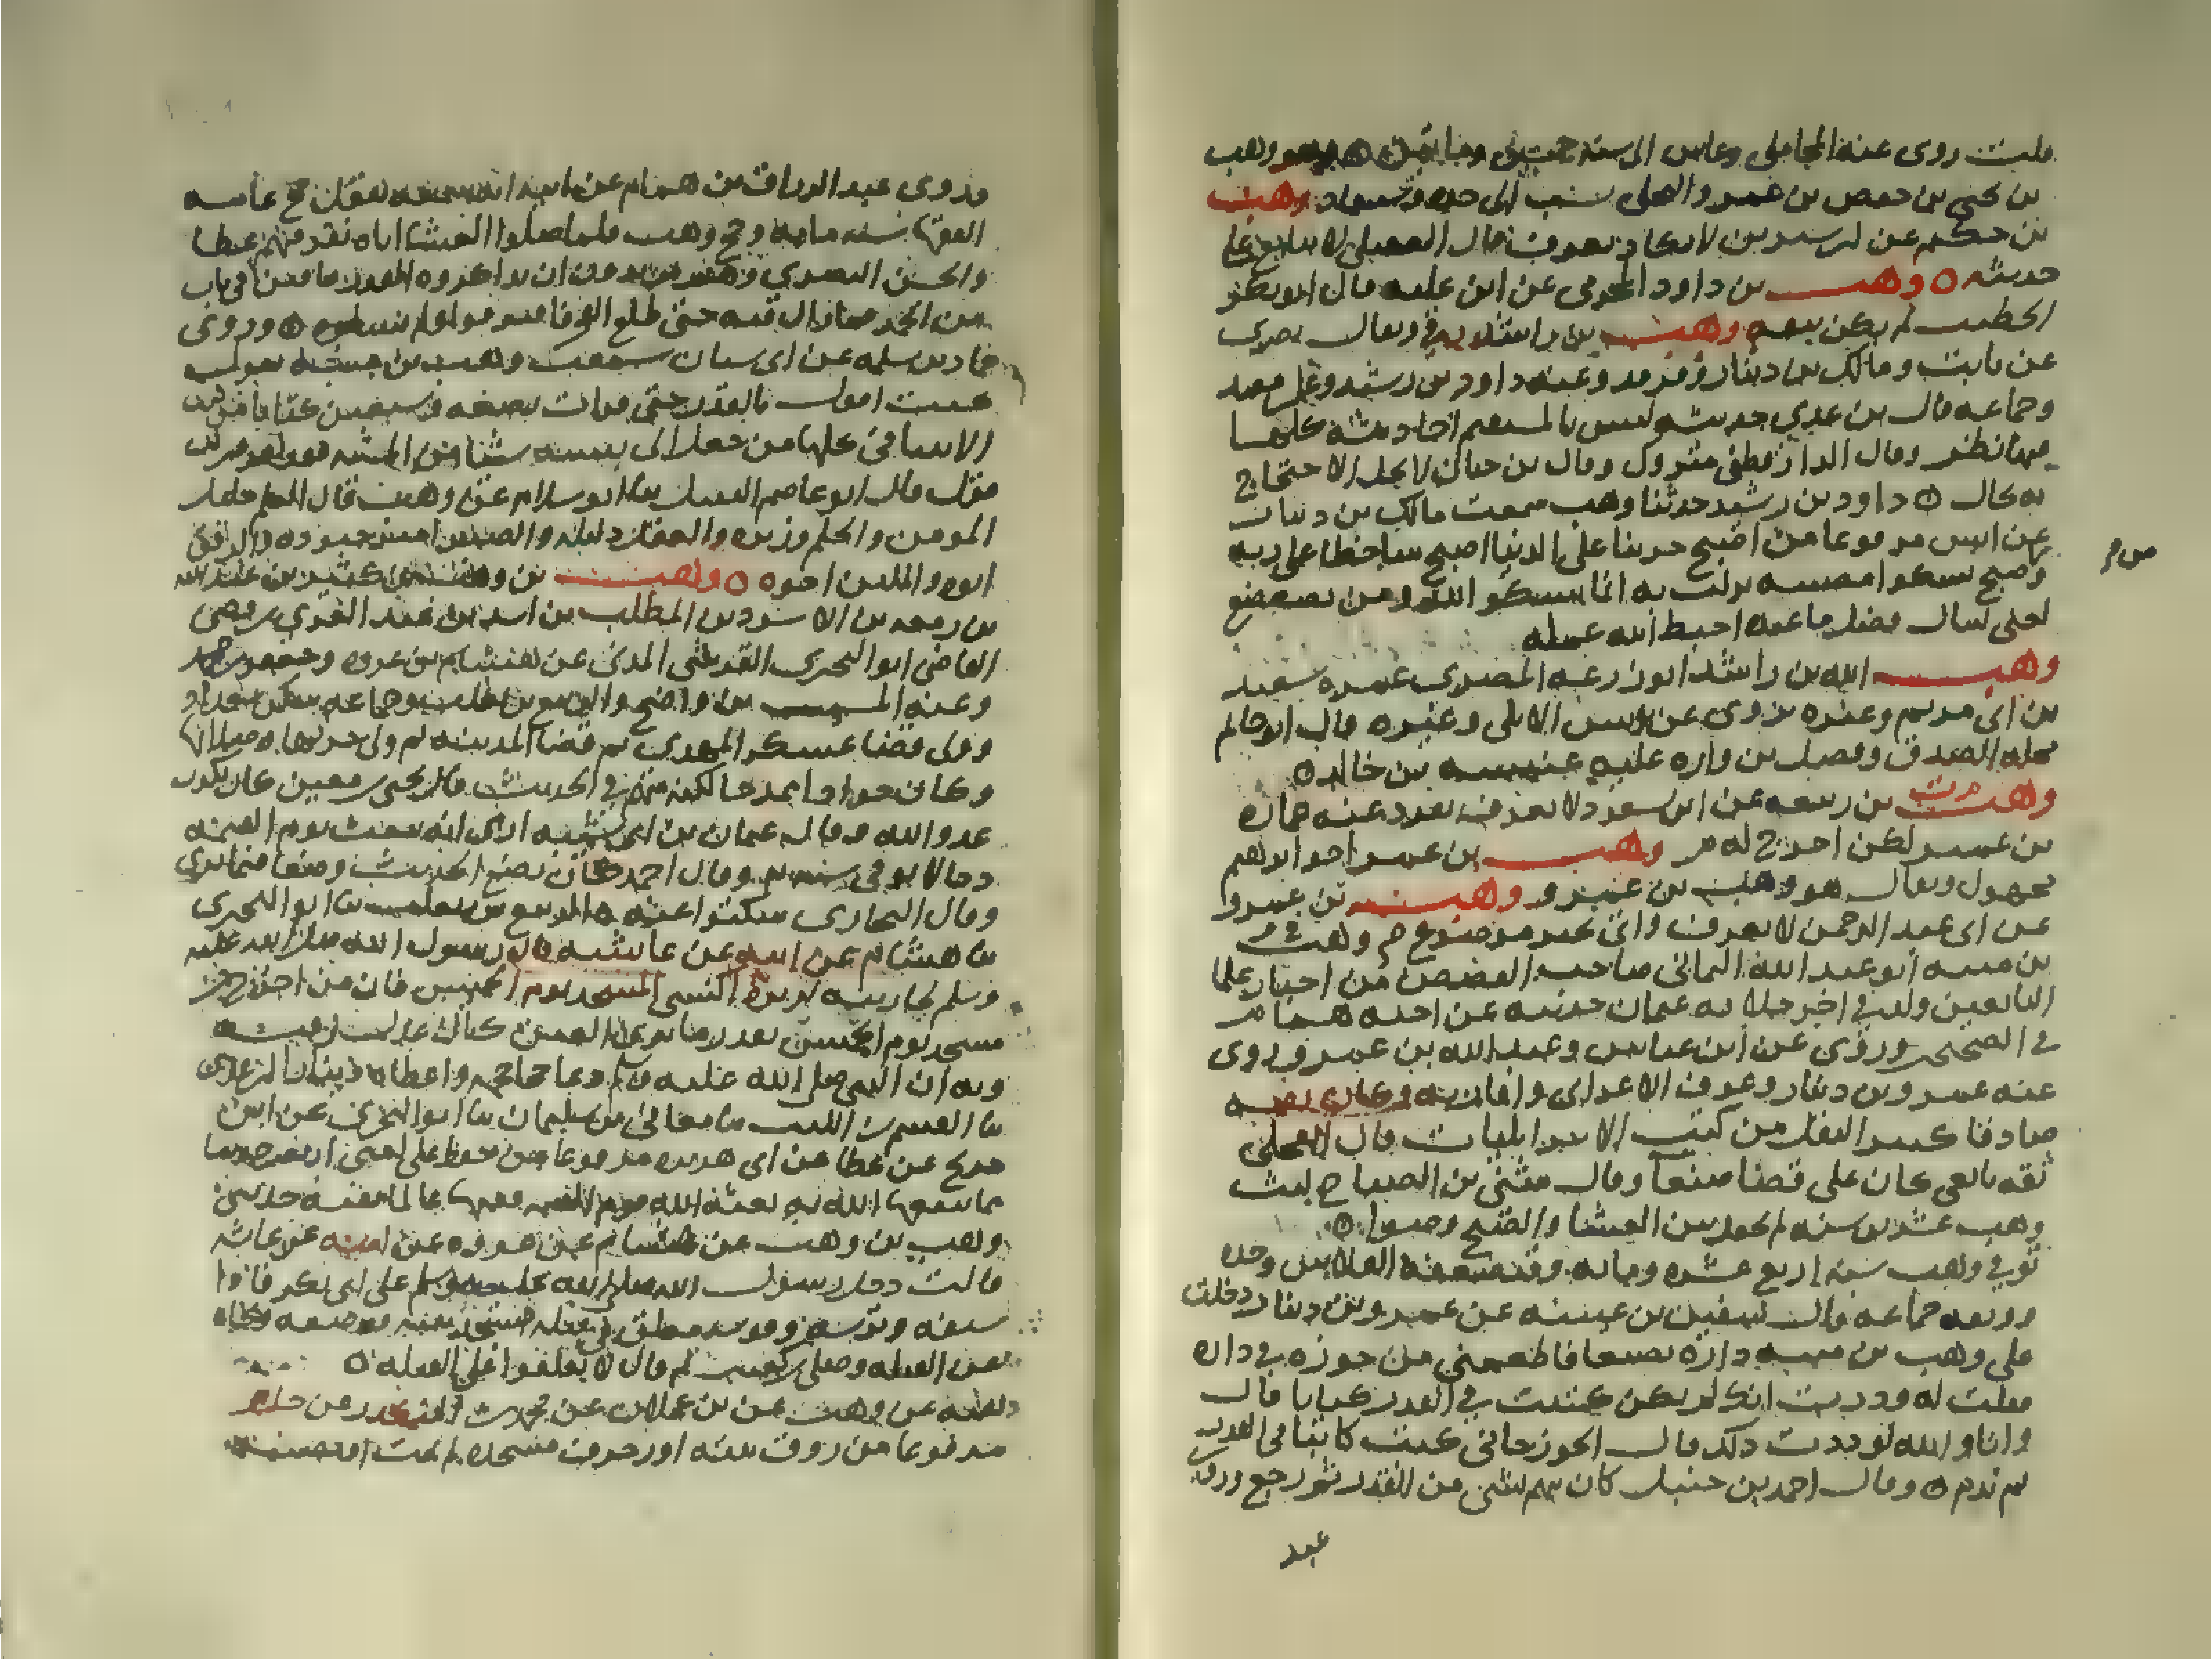 قلت روى عنه المحاملي وعاش الى سنة وهو وهب
بن يحيى بن حفص بن عمرو البجلي ينسب الى جده وهب
بن حكيم عن بن سيرين لا يكاد يعرف قال العقيلي لا يتابع على
حديثه ٥ وهب بن داود المخرمي عن ابن علية قال ابو بكر
الخطيب لم يكن بثقة وهب بن راشد رقي ويقال بصري
عن ثابت ومالك بن دينار وفرقد وعنه داود بن رشيد وعلي بن معبد
وجماعة قال بن عدي حديثه ليس بالمستقيم احاديثه كلها
فيها نظر وقال الدارقطني متروك وقال بن حبان لا يحل الاحتجاج
به بحال ٥ داود بن رشيد حدثنا وهب سمعت مالك بن دينار
عن انس مرفوعا من اصبح حزينا على الدنيا اصبح ساخطا على ربه
واصبح يشكوا مصيبة نزلت به انما يشكو الله ومن تضعضع
لغني لينال فضل ما عنده احبط الله عمله
وهب الله بن راشد ابو زرعة المصري غمزه سعيد
بن ابي مريم وغيره يروي عن يونس الايلي وغيره قال ابو حاتم
محله الصدق وفضل بن وارة عليه عنبسة بن خالد ٥
وهب بن ربيعة عن ابن مسعود لا يعرف تفرد عنه عمارة
بن عمير لكن اخرج له م وهب بن عمير اخو ابراهيم
مجهول ويقال هو وهب بن عمرو وهب بن عمرو
عن ابي عبد الرحمن لا يعرف واتى بخبر موضوع خ م وهب
بن منبه ابو عبد الله اليماني صاحب القصص من احبار علما
التابعين ولد في اخر خلافة عثمان حديثه عن اخيه همام
في الصحيحين وروى عن ابن عباس وعبد الله بن عمرو وروى
عنه عمرو بن دينار وعوف الاعرابي واقاربه وكان ثقة
صادقا كثير النقل من كتب الاسرائيليات قال العجلي
ثقة تابعي كان على قضا صنعا وقال مثنى بن الصباح لبث
وهب عشرين سنة لم يجعل بين العشا والصبح وضوا ٥
توفي وهب سنة اربع عشرة وماية وقد ضعفه الفلاس وحده
ووثقه جماعة قال سفين بن عيينة عن عمرو بن دينار دخلت
على وهب بن منبه داره بصنعا فاطعمني من جوزة في داره
فقلت له وددت انك لم تكن كتبت في القدر كتابا قال
وانا والله لوددت ذلك قال الجوزجاني كتب كتابا في القدر
ثم ندم ٥ وقال احمد بن حنبل كان يتهم بشي من القدر ثم رجع وروى
عبد
وروى عبد الرزاق بن همام عن ابيه انه سمعه يقول حج عامة
الفقها سنة ماية وحج وهب فلما صلوا العشا اتاه نفر فيهم عطا
والحسن البصري وهم يريدون ان يذاكروه القدر فافتن في باب
من الحمد فما زال فيه حتى طلع الفجر فافترقوا ولم يسالوه ٥ وروى
حماد بن سلمة عن ابي سنان سمعت وهب بن منبه يقول
كنت اقول بالقدر حتى قرات بضعة وسبعين كتابا من كتب
الانبيا في كلها من جعل الى نفسه شيا من المشية فقد كفر فتركت
قولي قال ابو عاصم النبيل ثنا ابو سلام عن وهب قال العلم خليل
المومن والحلم وزيره والعقل دليله والصبر امير جنوده والرفق
ابوه واللين اخوه ٥ وهب بن وهب بن كثير بن عبد الله
بن زمعة بن الاسود بن المطلب بن اسد بن عبد العزى بن قصي
القاضي ابو البختري القرشي المدني عن هشام بن عروة وجعفر بن محمد
وعنه المسيب بن واضح والربيع بن ثعلب وجماعة سكن بغداد
وولي قضا عسكر المهدي ثم قضا المدينة ثم ولي حربها وصلاتها
وكان جوادا ممدحا لكنه متهم في الحديث قال يحيى بن معين كان يكذب
عدو الله وقال عثمان بن ابي شيبة ارى انه يبعث يوم القيمة
دجالا توفي سنة وقال احمد كان يضع الحديث وضعا فيما نرى
وقال البخاري سكتوا عنه ٥ الربيع بن ثعلب ثنا ابو البختري
ثنا هشام عن ابيه عن عايشة قال رسول الله صلى الله عليه
وسلم لجاريته بريرة اكنسي المسجد يوم الخميس فان من اخرج من
مسجد يوم الخميس بقدر ما يقذي العين كان كعدل رقبة
وبه ان النبي صلى الله عليه وسلم دعا حجاما فحجمه واعطاه دينارا بن عدي
ثنا القسم بن الليث ثنا معافى بن سليمان ثنا ابو البختري عن ابن
جريج عن عطا عن ابي هريرة مرفوعا من حفظ على امتي اربعين حديثا
مما ينفعهم الله به بعثه الله يوم القيمة فقيها عالما حدثني
وهب بن وهب عن هشام عن عروة عن ابيه عن عايشة
قالت دخل رسول الله صلى الله عليه وسلم على ابي بكر فاذا
سيفه وترسه وقوسه معلق في قبلة مسجد بيته فوضعه ونحاه
عن القبلة وصلى ركعتين ثم قال لا تعلقوا على القبلة ٥
دلهمه عن وهب عن بن عجلان عن محمد بن المنكدر عن جابر
مرفوعا من زوق بيته او زخرف مسجده لم يمت او تصيبه